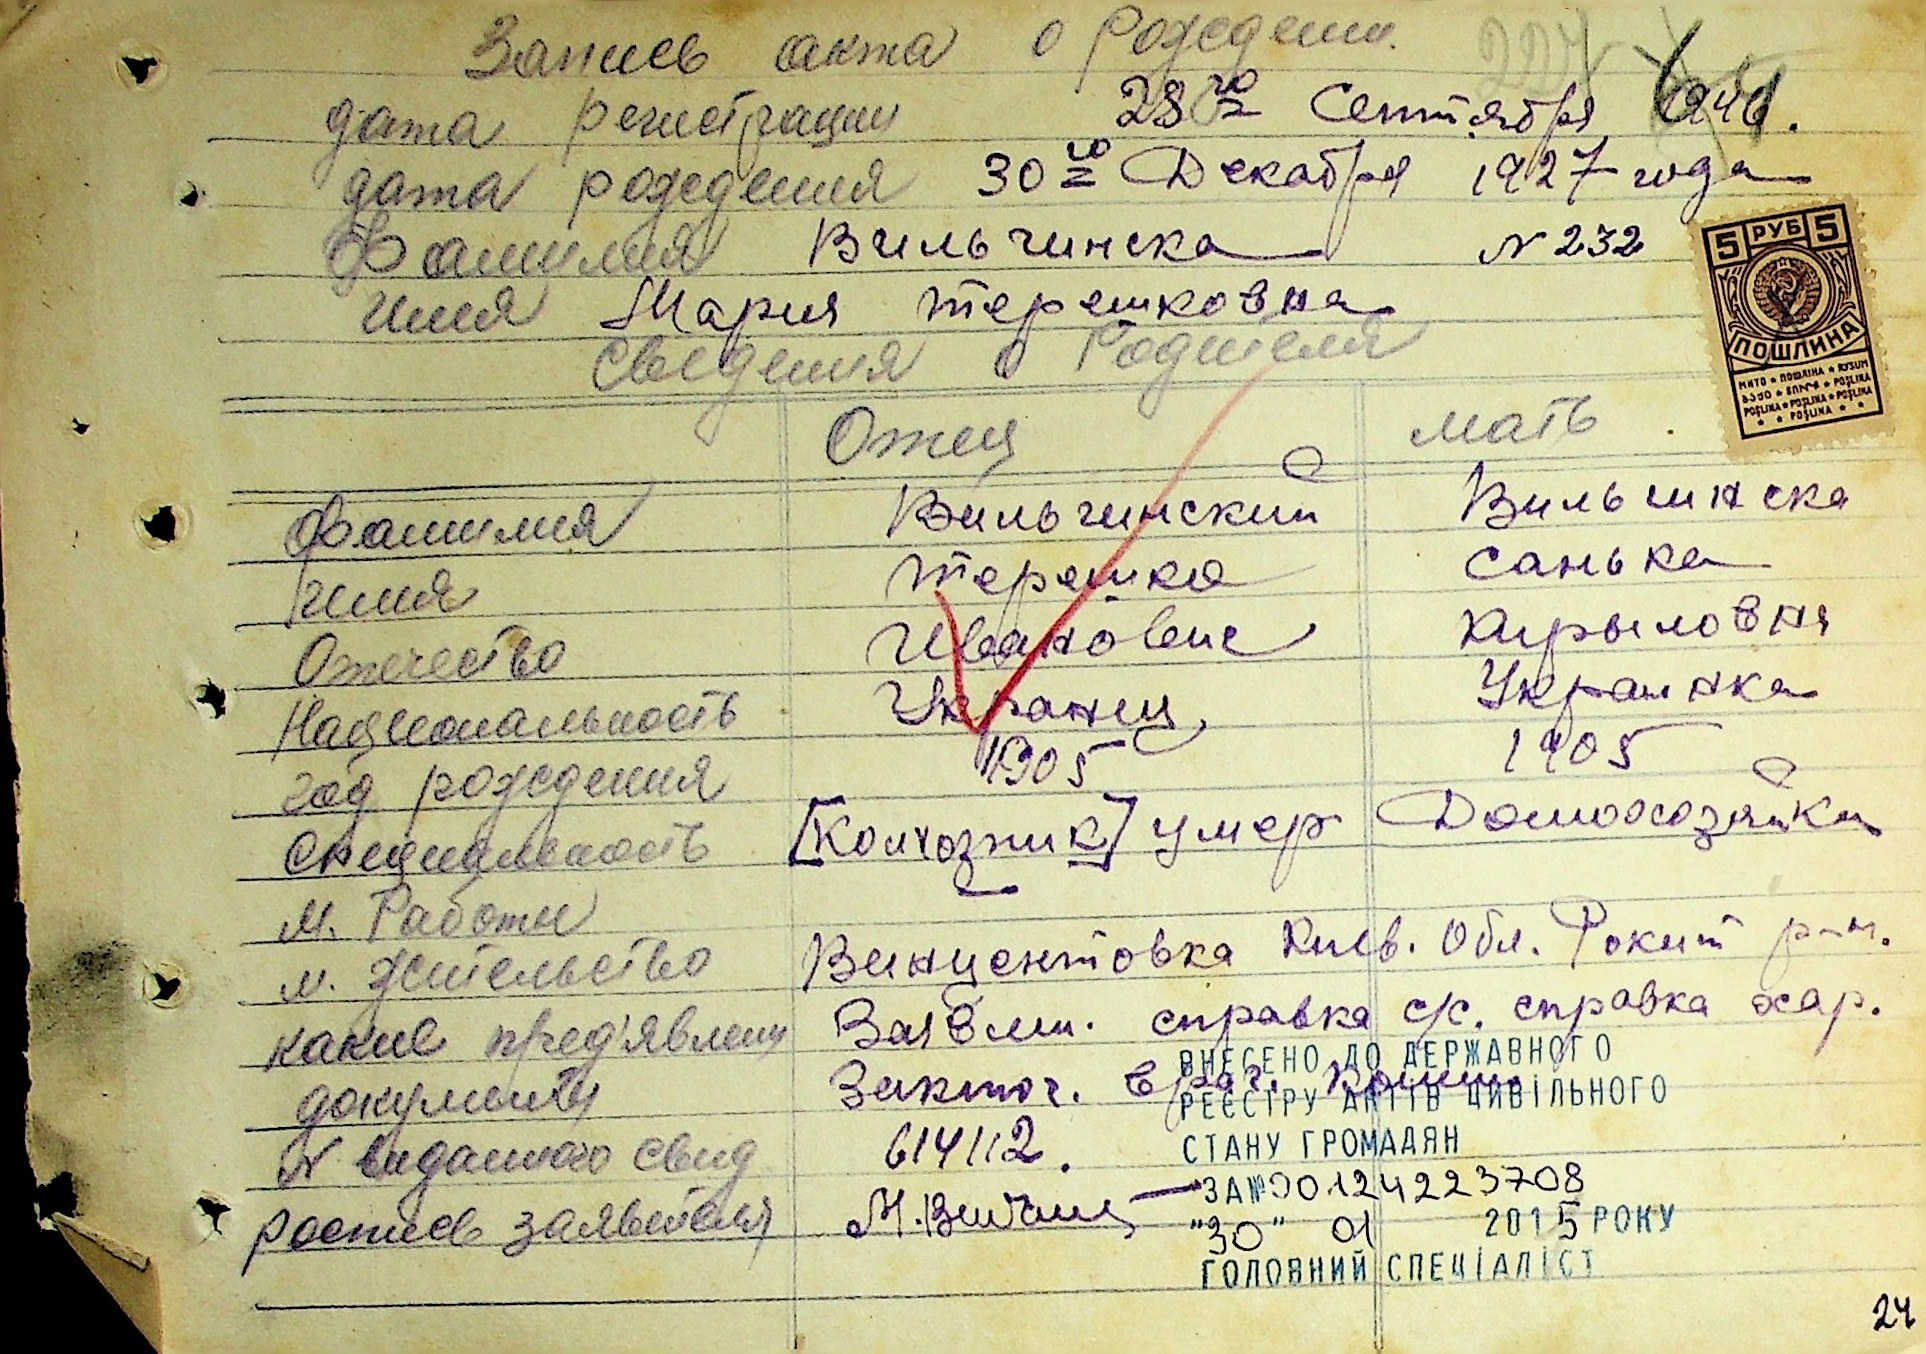 Запись акта о рождении.
дата регистрации 28го Сентября 1946.
дата рождения 30го Декабря 1927 года
Фамилия Вильчинска N 232
имя Мария Терешковна
Сведения о Родителя
Отец мать
Фамилия Вильчинский Вильчинска
имя Терешко Санька
Отчество Иванович Кирыловня
Национальность Укранец Украинка
год рождения 1905 1905
Специальность [Колхозник] умер Домохозяйка
м. Работы
м. жительство Винцентовка Киев. Обл. Рокит р-н.
какие пред'явлены Заявлен. справка с/с. справка хар.
документы Заключ. врач.
N виданного свид 614112.
роспись заявителя
5 РУБ 5
ПОШЛИНА
МИТО • ПОШЛІНА • RUSUM
POŞLINA • POŞLINA • POŞLINA
• POŞLINA • •
ВНЕСЕНО ДО ДЕРЖАВНОГО
РЕЄСТРУ АКТІВ ЦИВІЛЬНОГО
СТАНУ ГРОМАДЯН
ЗА№00124223708
"30" 01 2015 РОКУ
ГОЛОВНИЙ СПЕЦІАЛІСТ
24